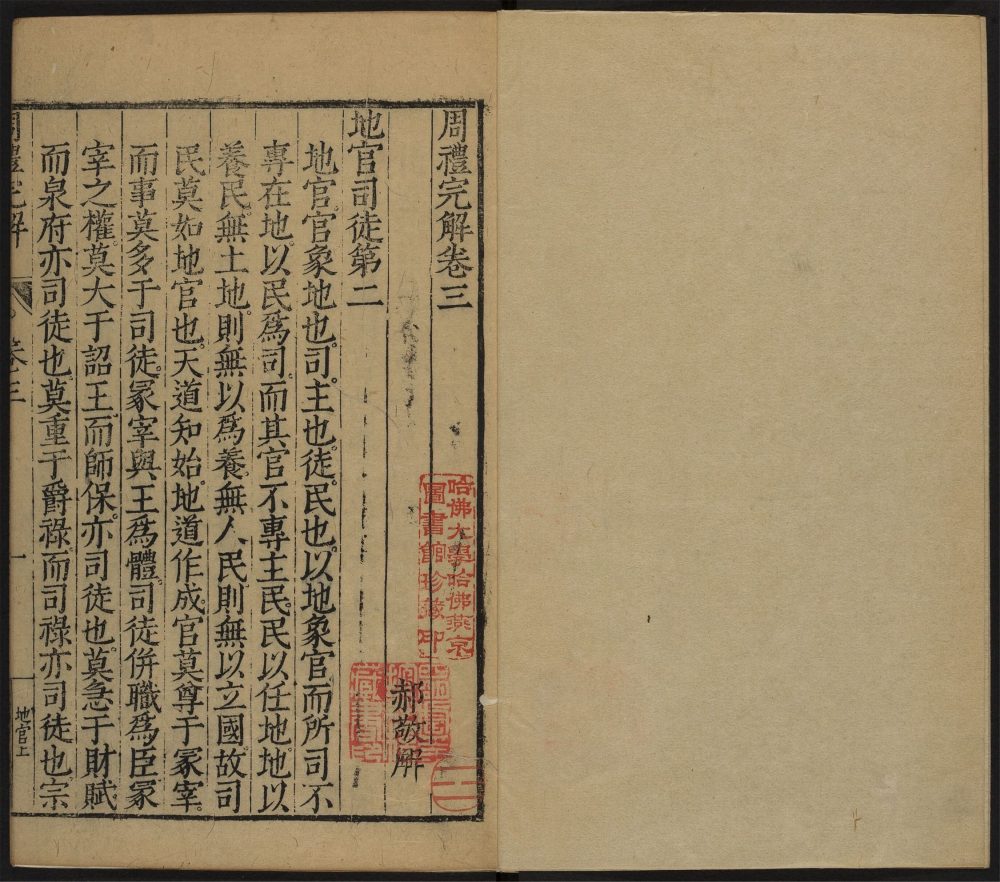 周禮完解卷三
郝敬解
地官司徒第二
地官官象地也。司。主也。徒。民也。以地象官而所司不
專在地以民爲司。而其官不專主民。民以任地。地以
養民。無土地。則無以爲養。無人民則無以立國。故司
民莫如地官也。天道知始。地道作成。官莫尊于冢宰。
而事莫多于司徒。冢宰與王爲體。司徒併職爲臣。冢
宰之權。莫大于詔王。而師保。亦司徒也。莫急于財賦。
而泉府亦司徒也。莫重于爵祿。而司祿亦司徒也。宗
周禮完解
卷三
一
地官上
哈佛大學哈佛燕京
圖書館珍藏印